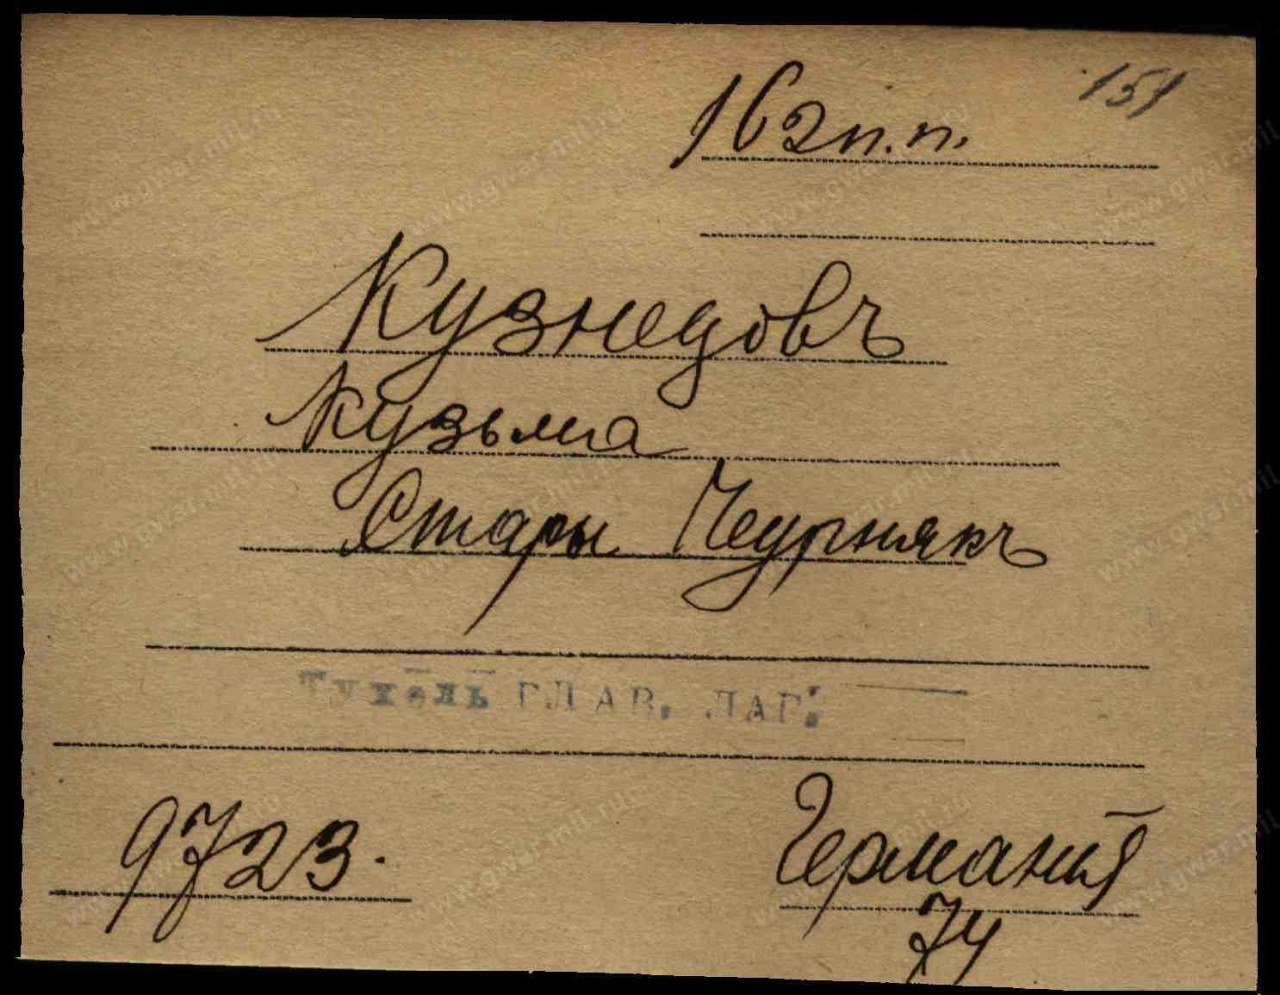 151
162 п. п.
Кузнецовъ
Кузьма
Стары Чеурнякъ
Тухель ГЛАВ. ЛАГ.
9723.
Германія
74
www.gwar.mil.ru